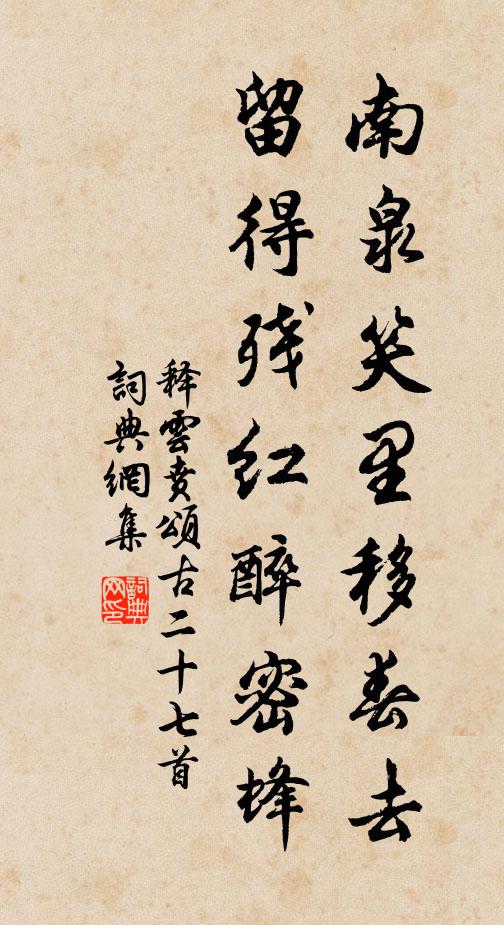 南泉笑里移春去
留得残红醉密蜂
释雲賁頌古二十七首
詞典網集
詞典网印